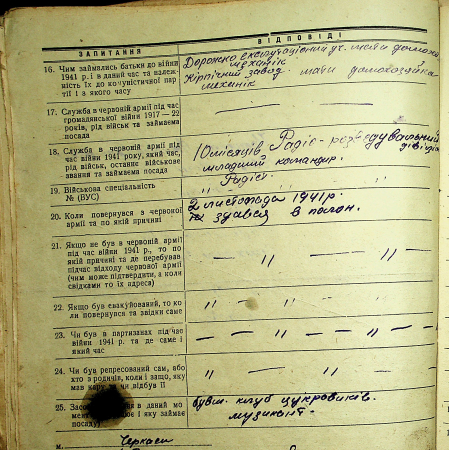 ЗАПИТАННЯ
ВІДПОВІДІ
16. Чим займались батьки до війни
1941 р. і в даний час та належ-
ність їх до комуністичної пар-
тії і з якого часу
Дорожно експлутаціоний уч. мати домохо
механік
Кірпічний завод. мати домохозяйка
механік
17. Служба в червоній армії під час
громадянської війни 1917 — 22
років, рід військ та займаєма
посада
18. Служба в червоній армії під
час війни 1941 року, який час,
рід військ, останнє військове
звання та займаєма посада
10 місяців Радіо-розведувальний
дівізіон
младший командир.
19. Військова спеціальність
№ (ВУС)
" Радіст. " "
20. Коли повернувся з червоної
армії та по якій причині
2 листопада 1941 р.
здався в полон.
21. Якщо не був в червоній армії
під час війни 1941 р., то по
якій причині та де перебував
підчас відходу червоної армії
(чим може підтвердити, а коли
свідками то їх адреса)
— " — " —
22. Якщо був евакуйований, то ко-
ли повернувся та звідки саме
" " "
23. Чи був в партизанах під час
війни 1941 р. та де саме і
який час
— " — " —
24. Чи був репресований сам, або
хто з родичів, коли і защо, яку
мав кару та чи відбув її
" — " "
25. в даний мо-
і яку займає
посаду)
бувш. клуб цукровиків.
музикант.
м. Черкаси